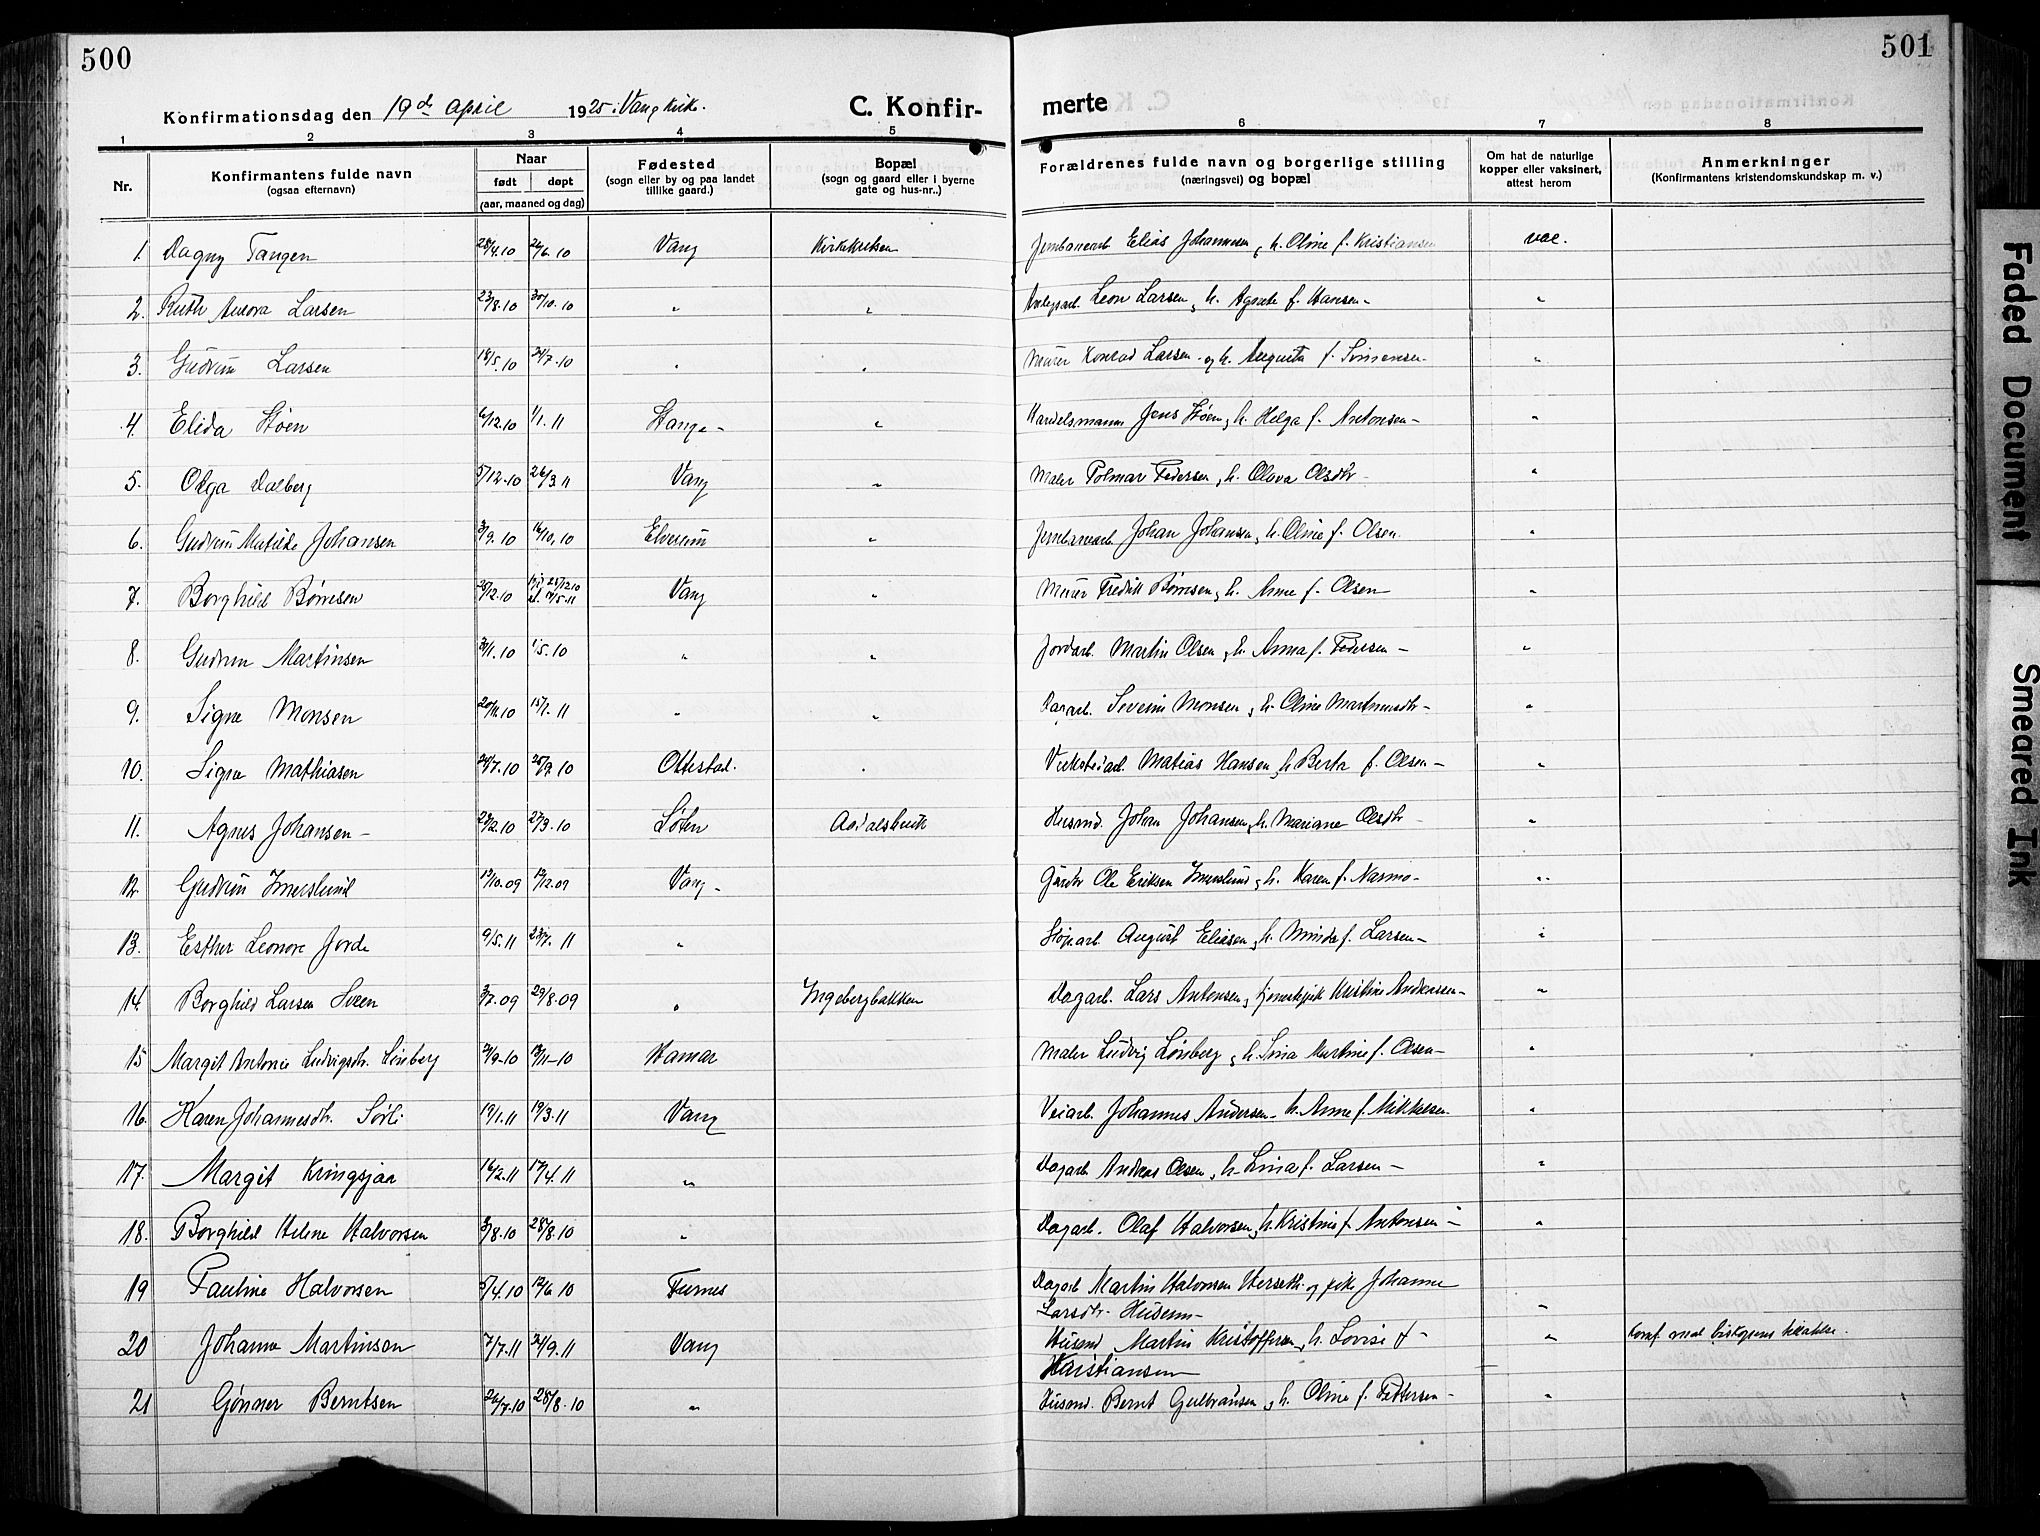 500
501
Konfirmationsdag den 19d April 1925 i Vang kirke.
C. Konfir-
merte
1 2 3 4 5 6 7 8
Nr.
Konfirmantens fulde navn
(ogsaa efternavn)
Naar
født døpt
(aar, maaned og dag)
Fødested
(sogn eller by og paa landet
tillike gaard.)
Bopæl
(sogn og gaard eller i byerne
gate og hus-nr..)
Forældrenes fulde navn og borgerlige stilling
(næringsvei) og bopæl
Om hat de naturlige
kopper eller vaksinert,
attest herom
Anmerkninger
(Konfirmantens kristendomskundskap m. v.)
1. Dagny Tangen 28/4.10 26/6.10 Vang Kirkekretsen Jernbanearb. Elias Johannesen, h. Oline f. Kristiansen vac.
2. Ruth Aurora Larsen 23/8.10 30/10.10 " " Leon Larsen, h. Agnete f. Hansen - "
3. Gudrun Larsen 18/5.10 24/7.10 " " Murer Konrad Larsen og h. Augusta f. Simensen - "
4. Elida Støen 6/12.10 1/1.11 Stange - " Handelsmann Jens Støen, h. Helga f. Antonsen - "
5. Olga Dalberg 5/12.10 26/3.11 Vang " Maler Polmar Pedersen, h. Olava Olsdtr - "
6. Gudrun Matilde Johansen 3/9.10 16/10.10 Elverum " Jernbanearb. Johan Johansen, h. Oline f. Olsen. "
7. Borghild Børresen 20/12.10 Vang " Murer Fredrik Børresen, h. Anne f. Olsen "
8. Gudrun Martinsen 30/1.10 1/5.10 " " Jordarb. Martin Olsen, h. Anna f. Pedersen - "
9. Signe Monsen 20/11.10 15/1.11 " " Dagarb. Severin Monsen, h. Oline Martinusdtr - "
10. Signe Mathiasen 24/7.10 25/9.10 Ottestad. " Matias Hansen, h. Berta f. Olsen - "
11. Agnes Johansen - 23/2.10 27/3.10 Løten Aadalsbruk Husmd. Johan Johansen, h. Mariane Olsdtr - "
12. Gudrun Imerslund 19/10.09 19/12.09 Vang - Gårdbr Ole Eriksen Imerslund, h. Karen f. Narmo - "
13. Esther Leonore Jorde 9/5.11 23/7.11 " August Eliasen, h. Minda f. Larsen - "
14. Borghild Larsen Sveen 3/7.09 29/8.09 " Ingebergbakken Dagarb. Lars Antonsen, tjenestepik Kristine Andersen - "
15 Margit Antonie Ludvigsdtr. Lønberg 21/9-10 13/11-10 Hamar Maler Ludvig Lønberg, h. Lina Martine f. Olsen - "
16. Karen Johannesdtr. Sørli 19/1.11 19/3.11 Vang Veiarb. Johannes Andersen - h. Anne f. Mikkelsen. "
17. Margit Kringsjaa 16/2.11 17/4.11 " Dagarb. Andreas Olsen, h. Lina f. Larsen - "
18. Borghild Helene Halvorsen 3/8.10 28/8.10 " Dagarb. Olaf Halvorsen, h. Kristine f. Antonsen - "
19 Pauline Halvorsen 5/4.10 12/6.10 Furnes Dagarb Martin Halvorsen Herseth og pike Johanne
Larsdtr. Husum - "
20 Johanne Martinsen 7/7.11 24/9.11 Vang Husmd Martin Kristoffersen, h. Lovise f - " konf. med biskopens tilladelse.
Kristiansen
21 Gønner Berntsen 24/7.10 28/8.10 " Husmd. Bernt Gulbransen, h. Oline f. Pettersen - "
Faded Document
Smeared Ink